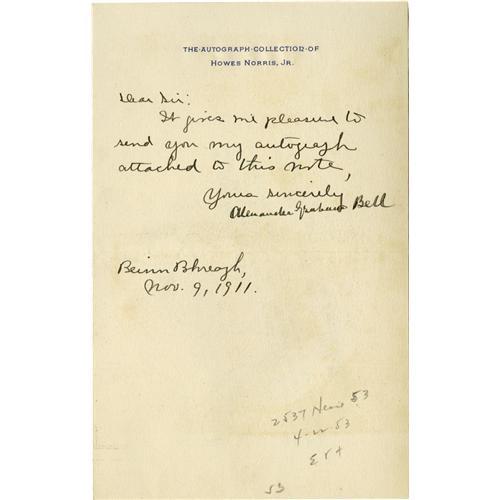 THE·AUTOGRAPH·COLLECTION·OF
HOWES NORRIS, JR.
Dear Sir:
It gives me pleasure to
send you my autograph
attached to this note,
Yours sincerely
Alexander Graham Bell
Beinn Bhreagh,
Nov. 9, 1911.
2537 53
53